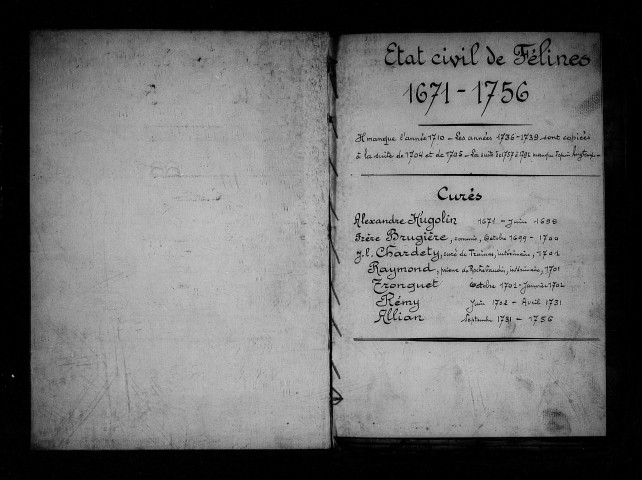 Etat civil de Félines
1671 - 1756
Il manque l'année 1710 - Les années 1736-1739 sont copiées
à la suite de 1704 et de 1705 - La suite de 1757 à 1792 manque depuis longtemps -
Curés
Alexandre Hugolin 1671 - Juin 1698
Frère Brugière, commis, Octobre 1699 - 1700
J. l. Chardety, curé de Truinas, intérimaire, 1701
Raymond, prieur de Rochebaudin, intérimaire, 1701
Tronquet Octobre 1701 - Janvier 1702
Rémy Juin 1702 - Avril 1731
Allian Septembre 1731 - 1756